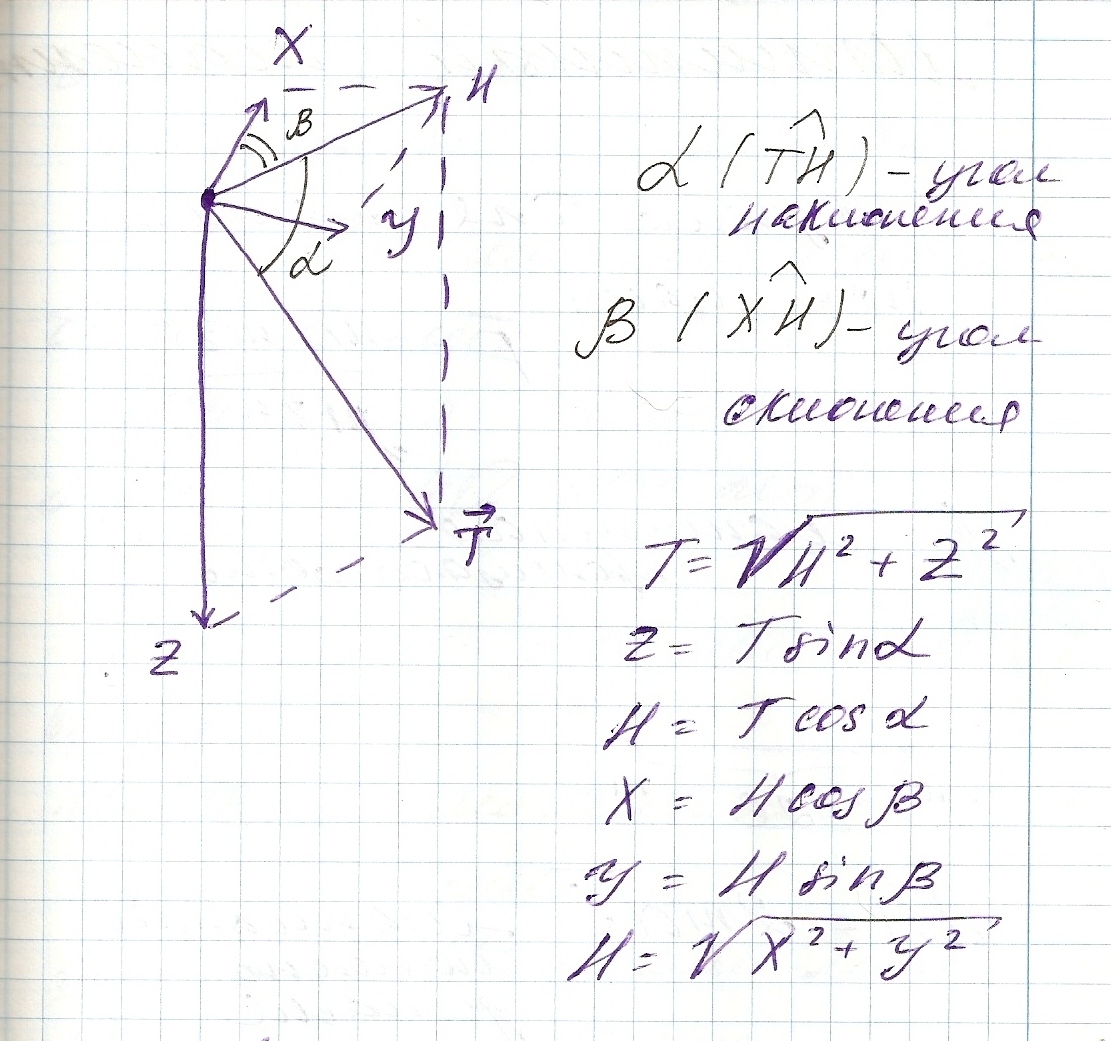 X
H
β
y
α
T⃗
Z
α (T͡H) – угол
наклонения
β (X͡H) – угол
склонения
T = √H² + Z²
Z = T sinα
H = T cos α
X = H cos β
y = H sin β
H = √X² + y²